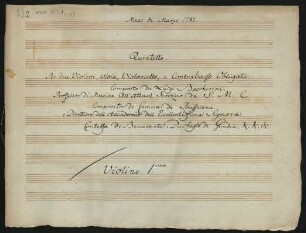 Mese di Marzo 1787.
Quintetto
Per due Violini, Viola, Violoncello, e Contrabasso Obligato
Composto da Luigi Boccherini
Professor di Musica All' Attual Servizio di S. M. C.
Compositor di Camera di Prussiana
e Direttore dell' Accademie dell' Eccellentissima Signora
Contessa di Benavente Duchessa di Gandia &. &. &.
Violino 1mo